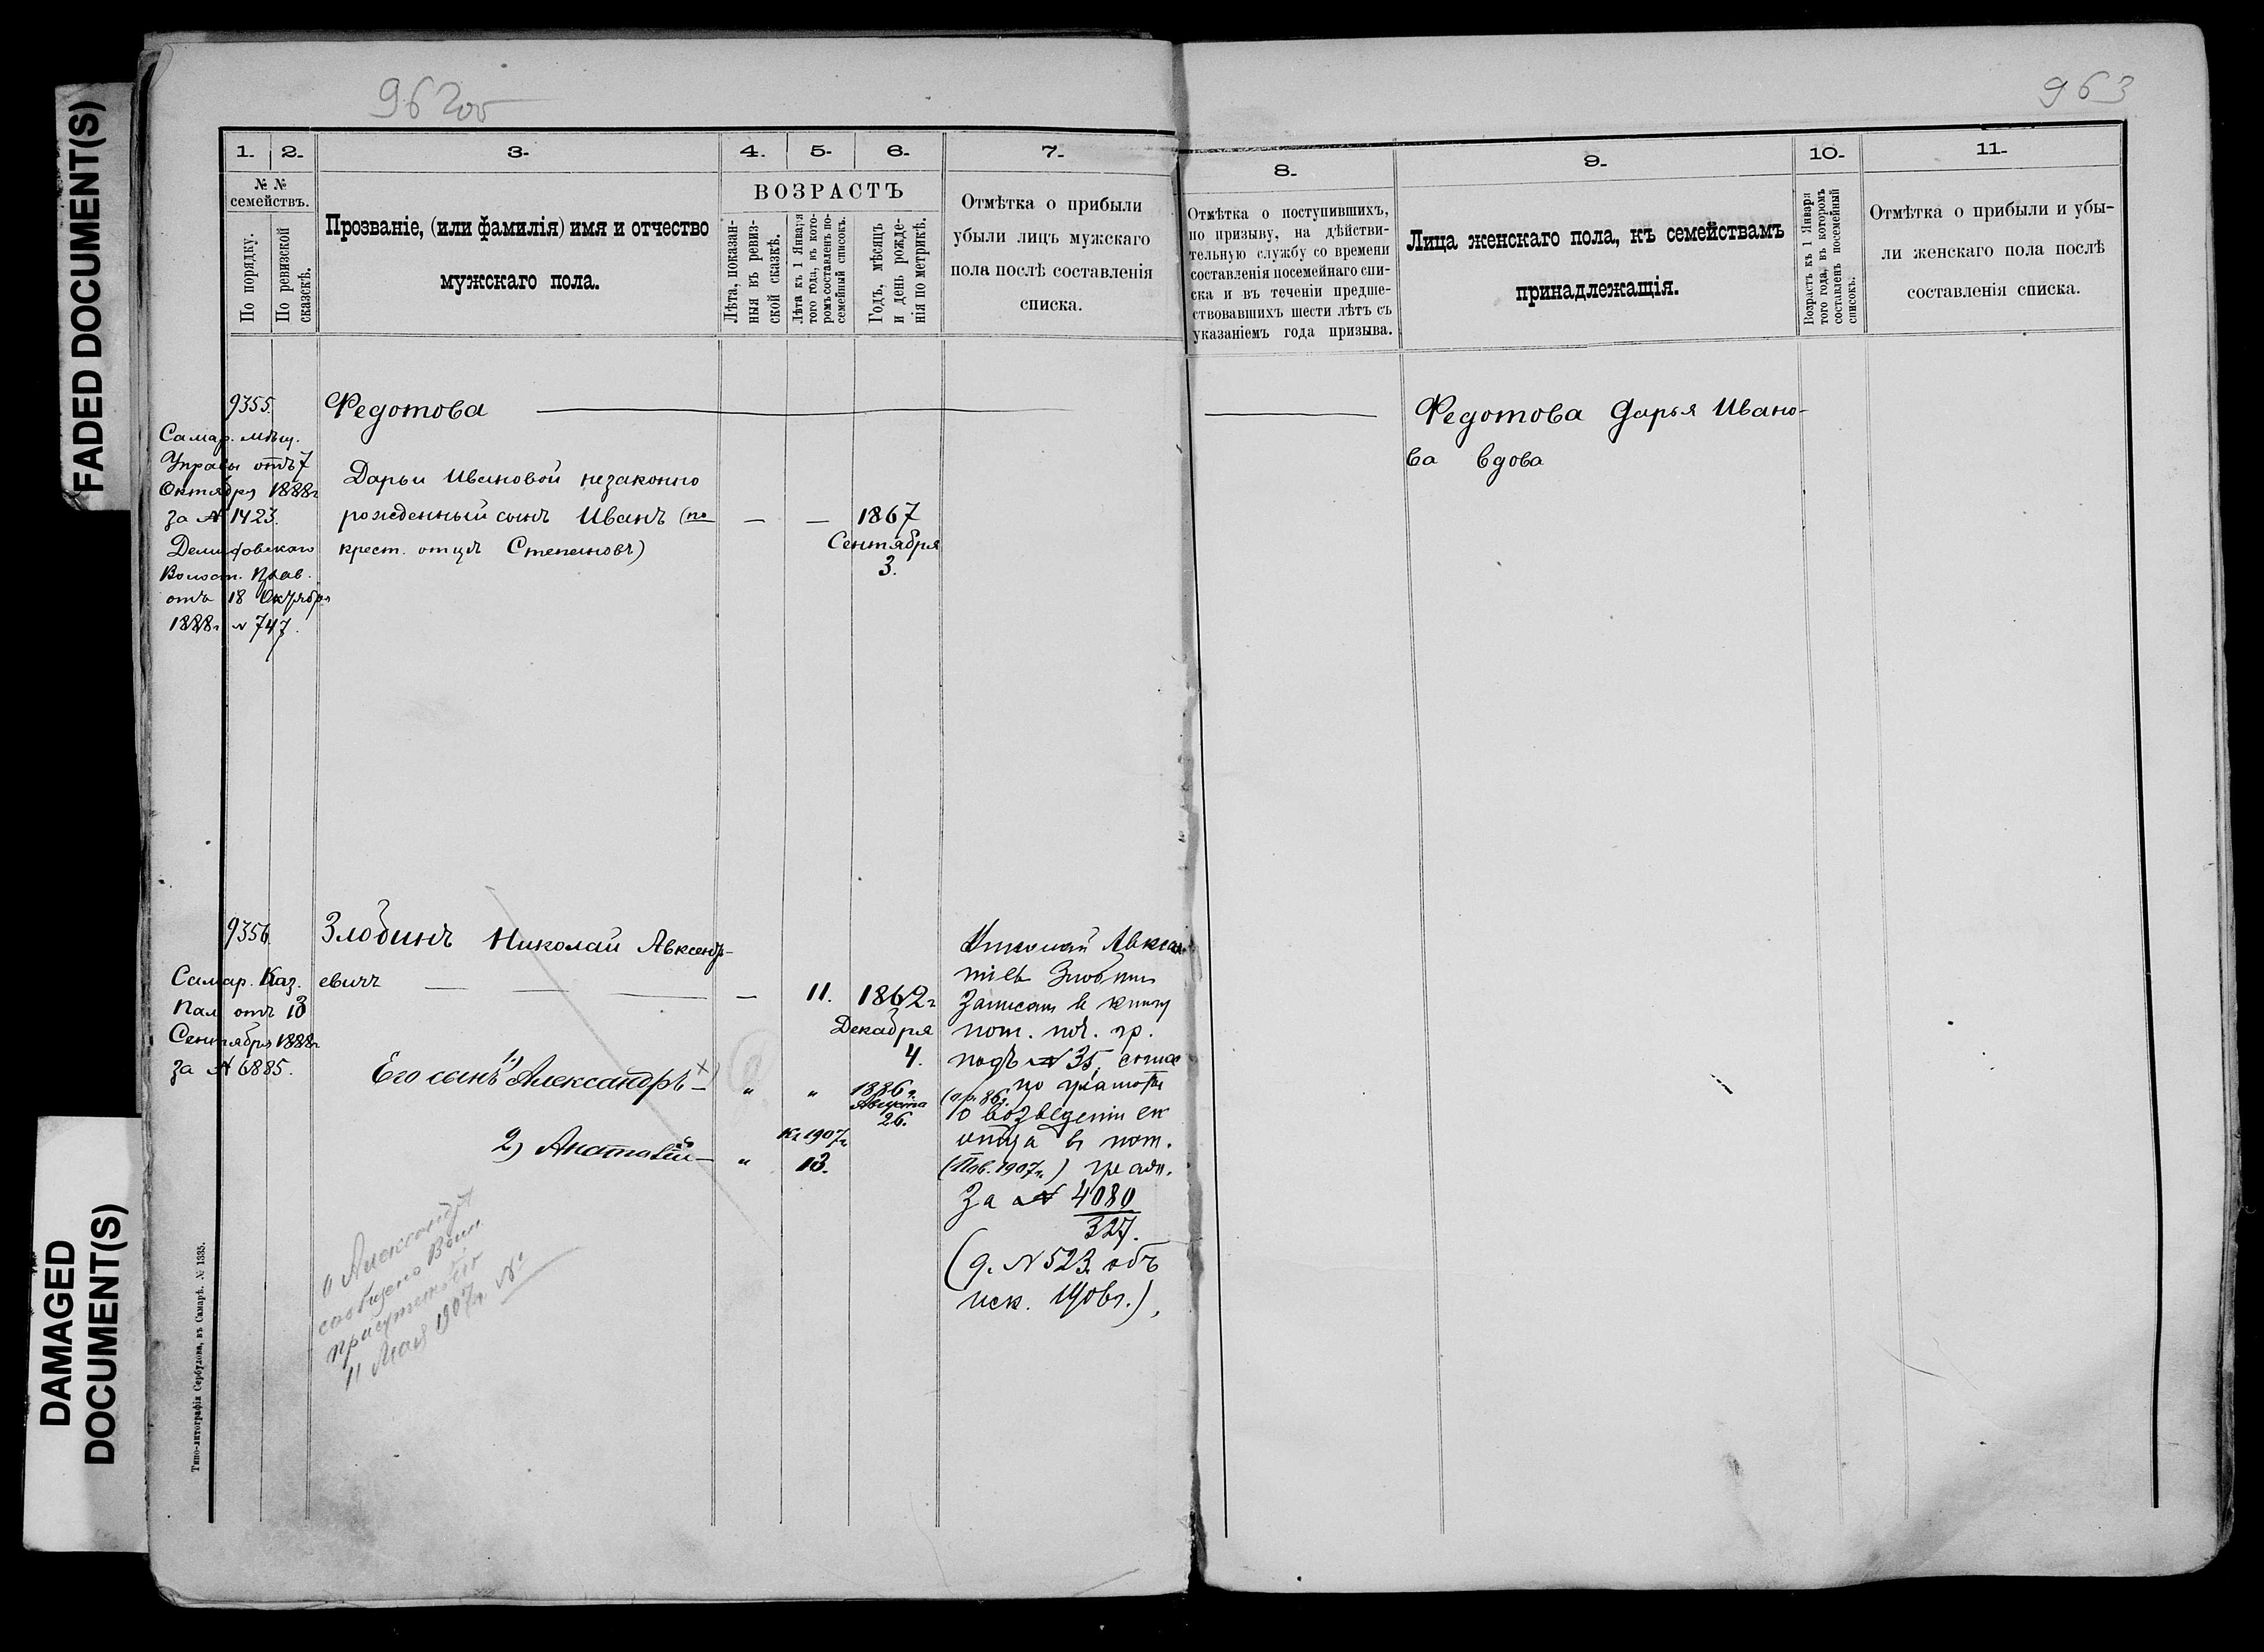 FADED DOCUMENT(S)
DAMAGED
DOCUMENT(S)
962об
963
1. 2. 3. 4. 5. 6. 7.
№ №
семействъ.
По порядку.
По ревизской
сказкѣ.
Прозваніе, (или фамилія) имя и отчество
мужскаго пола.
ВОЗРАСТЪ
Лѣта, показан-
ныя въ ревиз-
ской сказкѣ.
Лѣта къ 1 Января
того года, въ кото-
ромъ составленъ по-
семейный списокъ.
Годъ, мѣсяцъ
и день рожде-
нія по метрикѣ.
Отмѣтка о прибыли
убыли лицъ мужскаго
пола послѣ составленія
списка.
8. 9. 10. 11.
Отмѣтка о поступившихъ,
по призыву, на дѣйстви-
тельную службу со времени
составленія посемейнаго спи-
ска и въ теченіи предше-
ствовавшихъ шести лѣтъ съ
указаніемъ года призыва.
Лица женскаго пола, къ семействамъ
принадлежащія.
Возрастъ къ 1 Января
того года, въ которомъ
составленъ посемейный
списокъ.
Отмѣтка о прибыли и убы-
ли женскаго пола послѣ
составленія списка.
9355.
Самар. мѣщ.
Управы отъ 7
Октября 1888г
за № 1423.
Волост. Прав.
отъ 18 Октября
1888г № 747.
Федотова
Дарьи Ивановой незаконно
рожденный сынъ Иванъ (по
крест. отцѣ Степановъ)
— — 1867
Сентября
3.
Федотова Дарья Ивано-
ва вдова
9356.
Самар. Каз.
Пал. отъ 13
Сентября 1888г
за № 6885.
Злобинъ Николай Авксенть-
евичъ
— 11. 1862г
Декабря
4.
Его сынъ 1) Александръ
" " 1886г.
Августа
26.
2) Анатолій
Къ 1907г.
" 13.
Николай Авксен
тіев Злобин
Записан в книгу
пот. поч. гр.
подъ № 35,
по грамоте
о возведении
отца в пот.
(Пов. 1907г.)
За № 4080
327.
(д. № 523 объ
иск.
О Александре
сообщено Воин.
присутствію
11 Мая 1907г. №
Типо-литографія Сербулова, въ Самарѣ. № 1335.